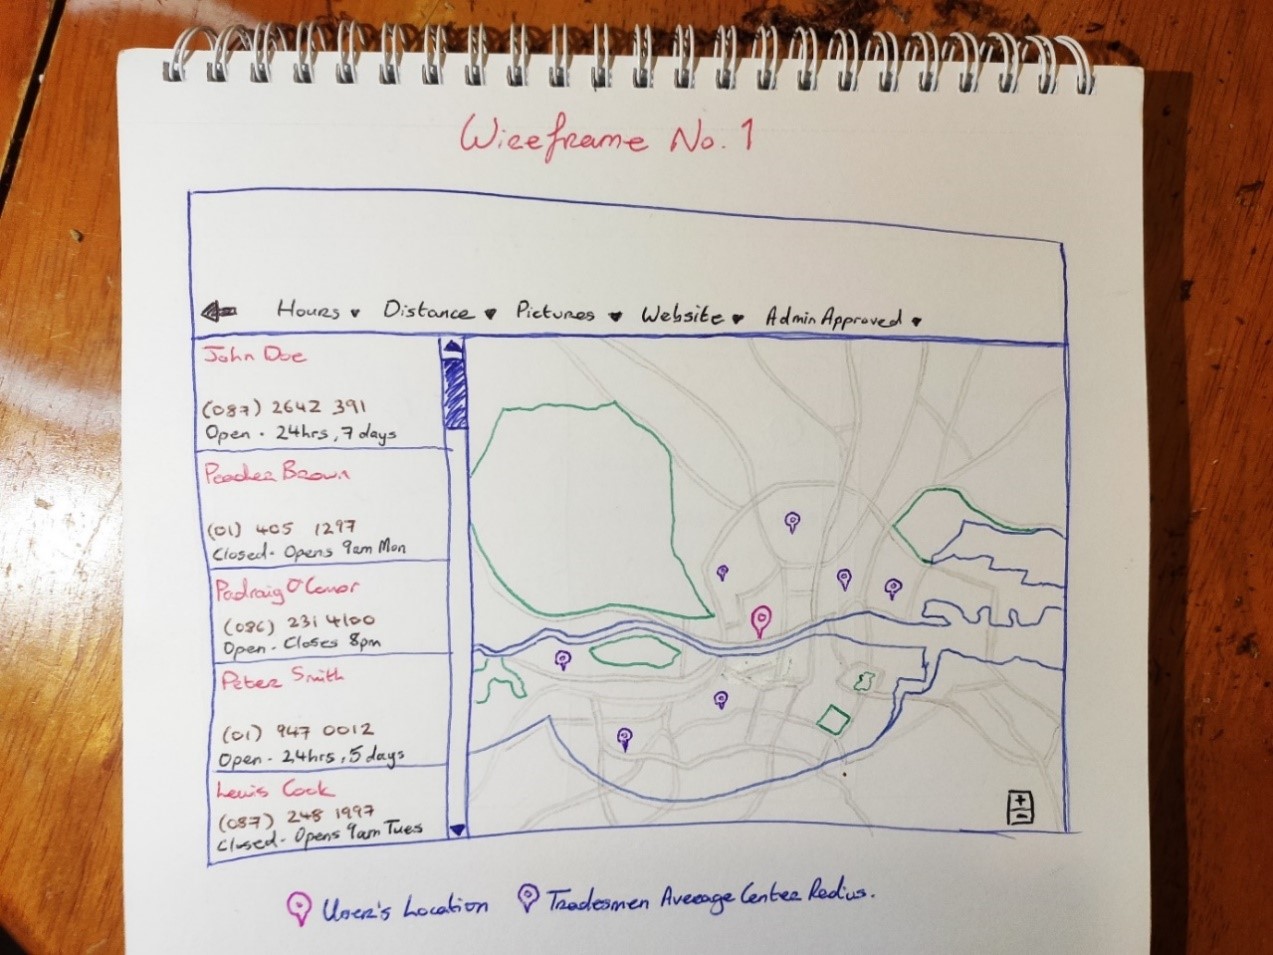 Wireframe No. 1
Hours Distance Pictures Website Admin Approved
John Doe
(087) 2642 391
Open - 24hrs, 7 days
Brown
(01) 405 1297
Closed - Opens 9am Mon
Padraig O'Conor
(086) 231 4100
Open - Closes 8pm
Peter Smith
(01) 947 0012
Open - 24hrs, 5 days
Lewis Cook
(087) 248 1997
Closed - Opens 9am Tues
+
-
User's Location Tradesmen Average Center Radius.